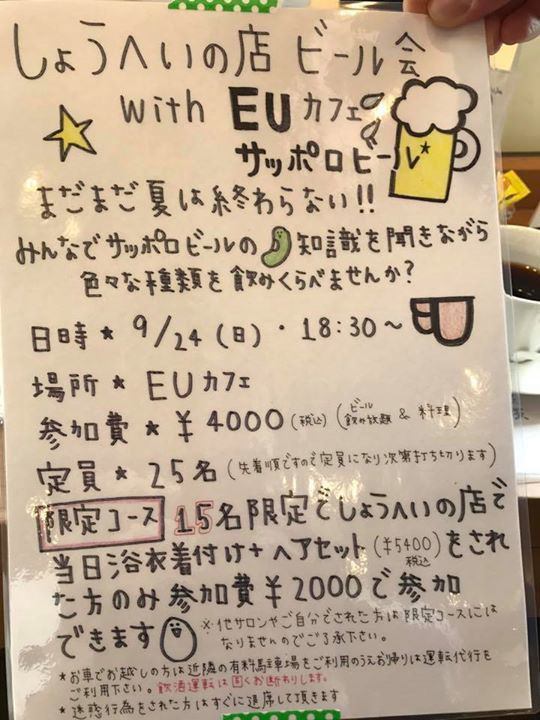 しょうへいの店 ビール会
with EUカフェ
サッポロビール
まだまだ夏は終わらない!!
みんなでサッポロビールの 知識を聞きながら
色々な種類を飲みくらべませんか?
日時 * 9/24 (日) ・ 18:30~
場所 * EUカフェ
参加費 * ¥4000 (税込) (ビール飲み放題 & 料理)
定員 * 25名 (先着順ですので定員になり次第打ち切ります)
限定コース 15名限定でしょうへいの店で
当日浴衣着付け+ヘアセット (¥5400 税込) をされ
た方のみ参加費¥2000で参加
できます
※他サロンやご自分でされた方は限定コースには
なりませんのでご了承下さい。
*お車でお越しの方は近隣の有料駐車場をご利用のうえお帰りは運転代行を
ご利用下さい。飲酒運転は固くお断わりします。
*迷惑行為をされた方はすぐに退席して頂きます